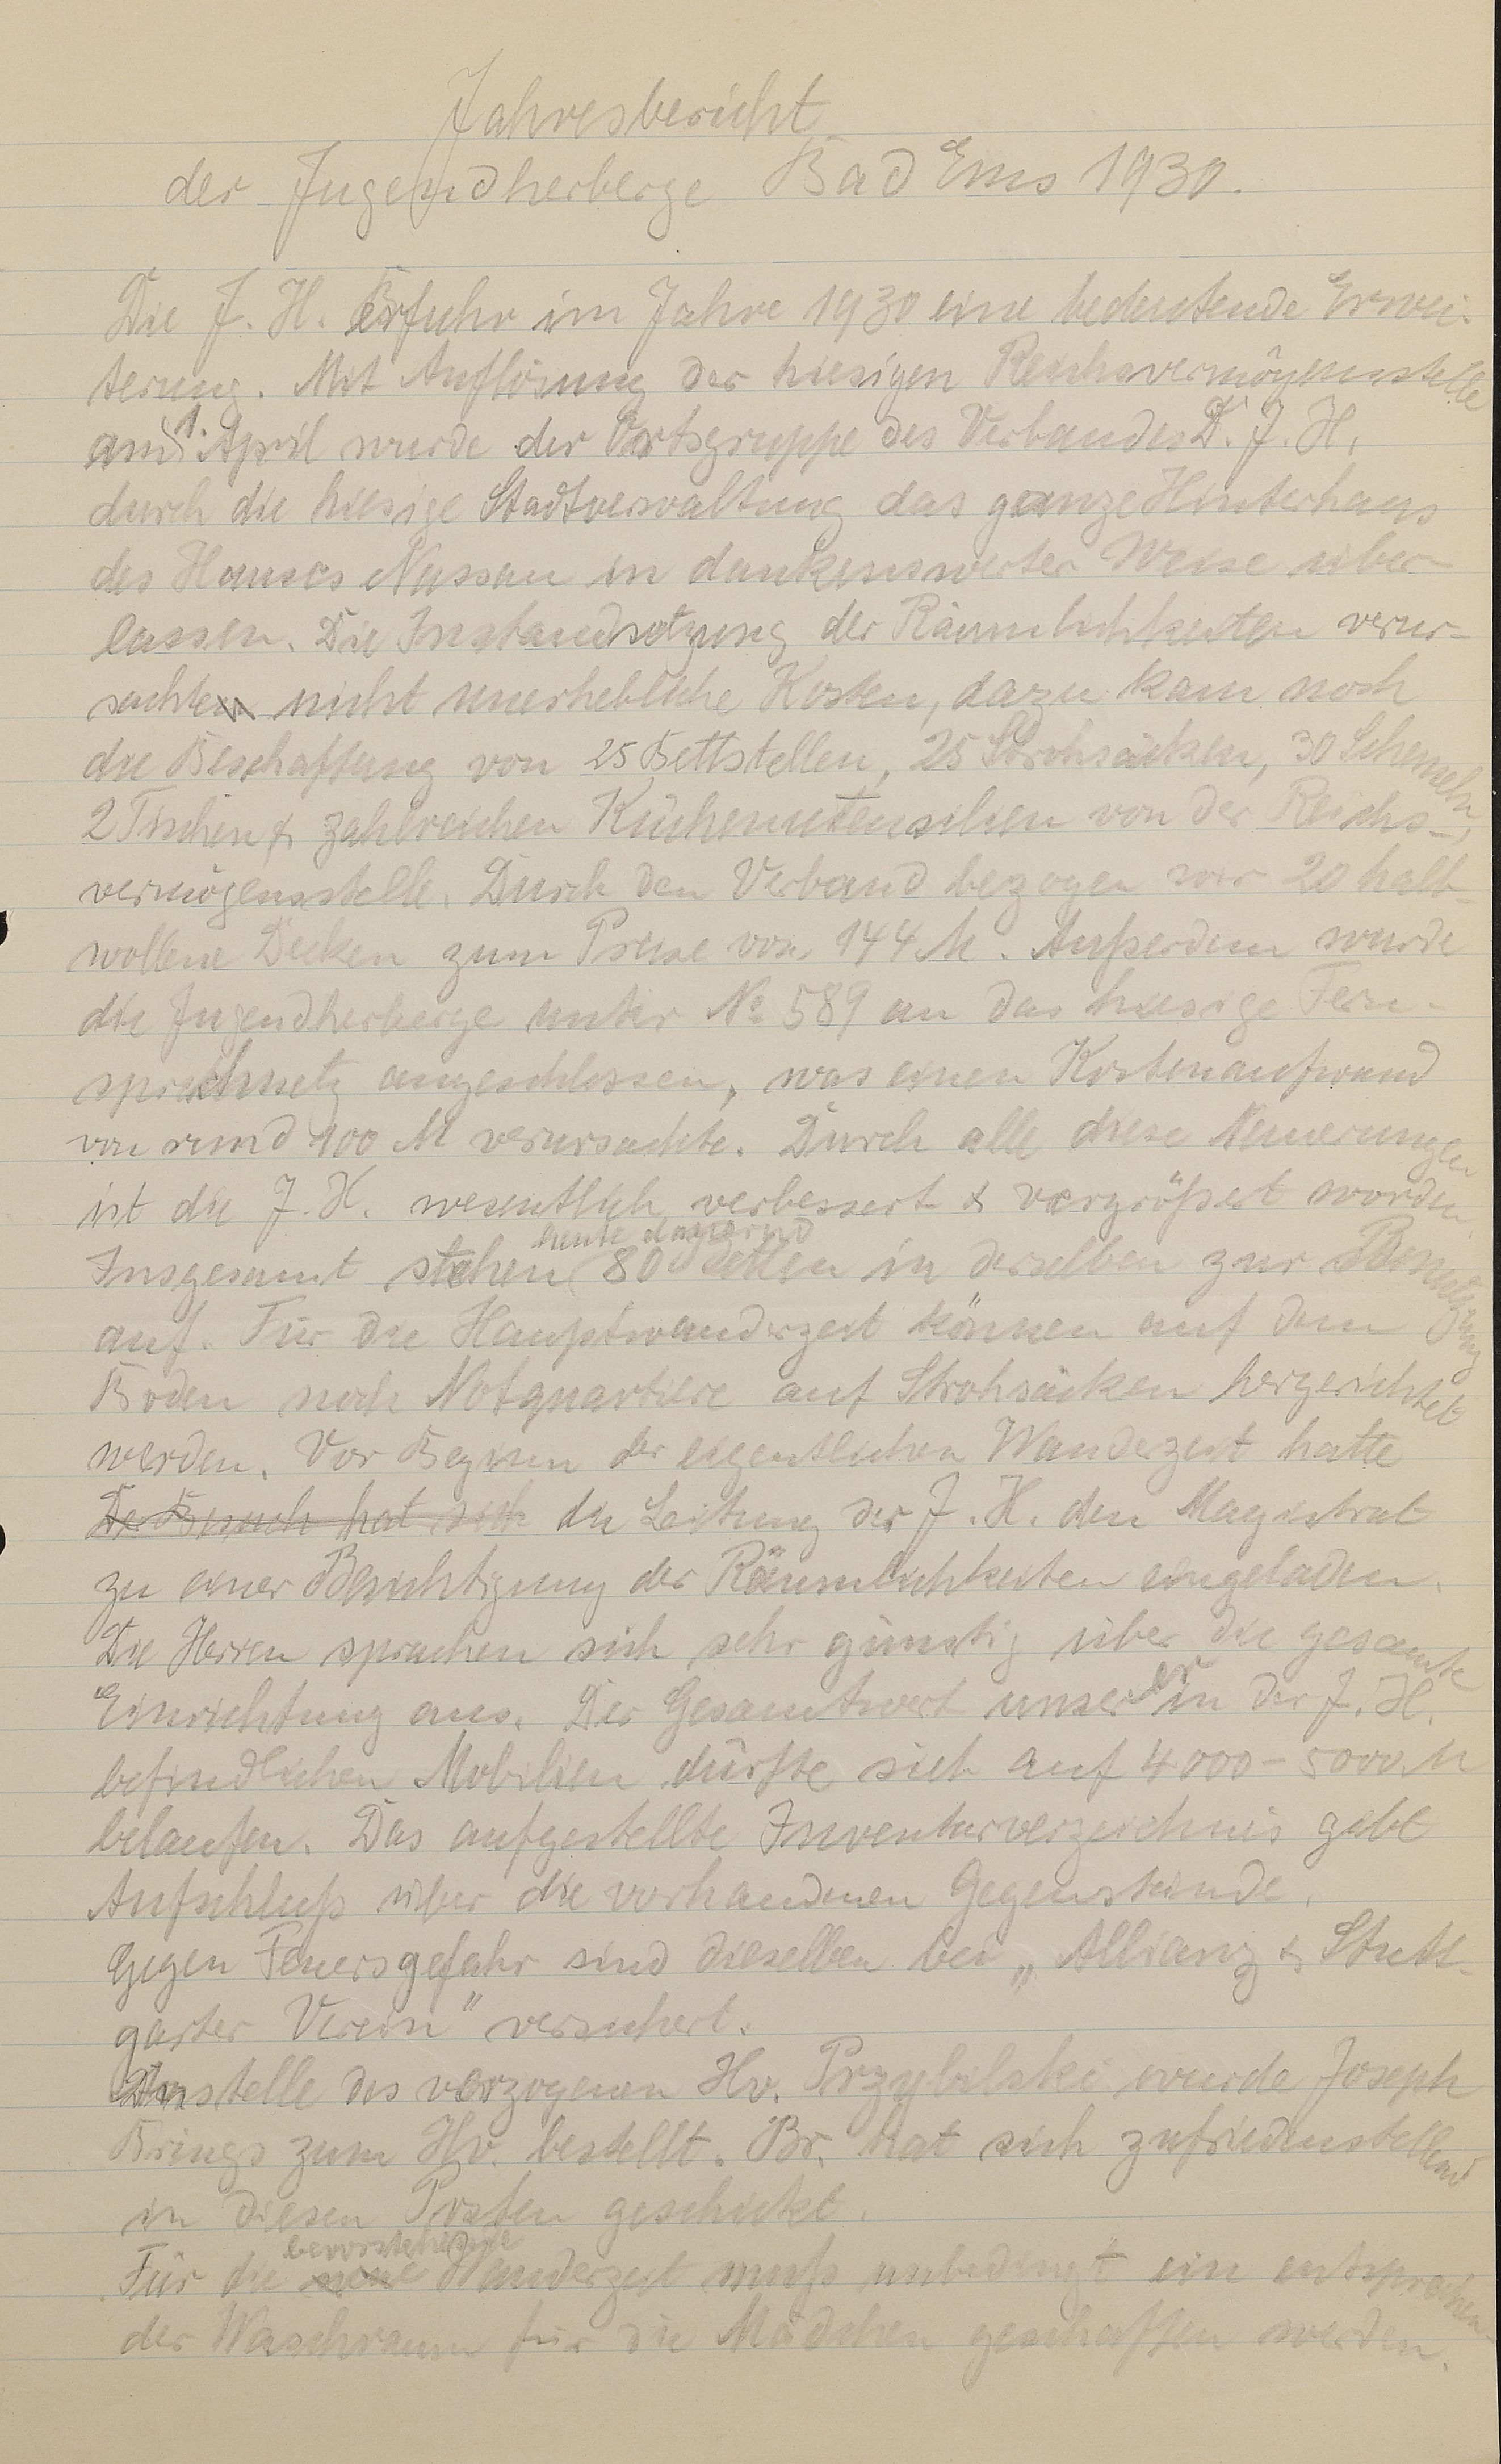 Jahresbericht
der Jugendherberge Bad Ems 1930.
Die J. H. Erfuhr im Jahre 1930 eine bedeutende Erwei-
terung. Mit Auflösung der hiesigen Reichsvermögensstelle
am 1. April wurde der Ortsgruppe des Verbandes D. J. H.
durch die hiesige Stadtverwaltung das ganze Hinterhaus
des Hauses Nassau in dankenswerter Weise über-
lassen. Die Instandsetzung der Räumlichkeiten verur-
sachte nicht unerhebliche Kosten, dazu kam noch
die Beschaffung von 25 Bettstellen, 25 Strohsäcken, 30 Schemeln,
2 Tischen & zahlreichen Küchenutensilien von der Reichs-
vermögensstelle. Durch den Verband bezogen wir 20 halb-
wollene Decken zum Preise von 144 M. Außerdem wurde
die Jugendherberge unter No 589 an das hiesige Fern-
sprechnetz angeschlossen, was einen Kostenaufwand
von rund 100 M verursachte. Durch alle diese Neuerungen
ist die J. H. wesentlich verbessert & vergrößert worden.
Insgesamt stehen heute dauernd 80 Betten in derselben zur Benutzung
auf. Für die Hauptwanderzeit können auf dem
Boden noch Notquartiere auf Strohsäcken hergerichtet
werden. Vor Beginn der eigentlichen Wanderzeit hatte
Der Besuch hat sich die Leitung der J. H. den Magistrat
zu einer Besichtigung der Räumlichkeiten eingeladen.
Die Herren sprachen sich sehr günstig über die gesamte
Einrichtung aus. Der Gesamtwert unserer in der J. H.
befindlichen Mobilien dürfte sich auf 4000 - 5000 M
belaufen. Das aufgestellte Inventarverzeichnis gebt
Aufschluß über die vorhandenen Gegenstände.
Gegen Feuersgefahr sind dieselben bei „Allianz & Stutt-
garter Verein" versichert.
Anstelle des verzogenen Hv. Przybilski wurde Joseph
Brings zum Hv. bestellt. Br. hat sich zufriedenstellend
in diesen Posten geschickt.
Für die neue bevorstehende Wanderzeit muß unbedingt ein entsprechen-
der Waschraum für die Mädchen geschaffen werden.